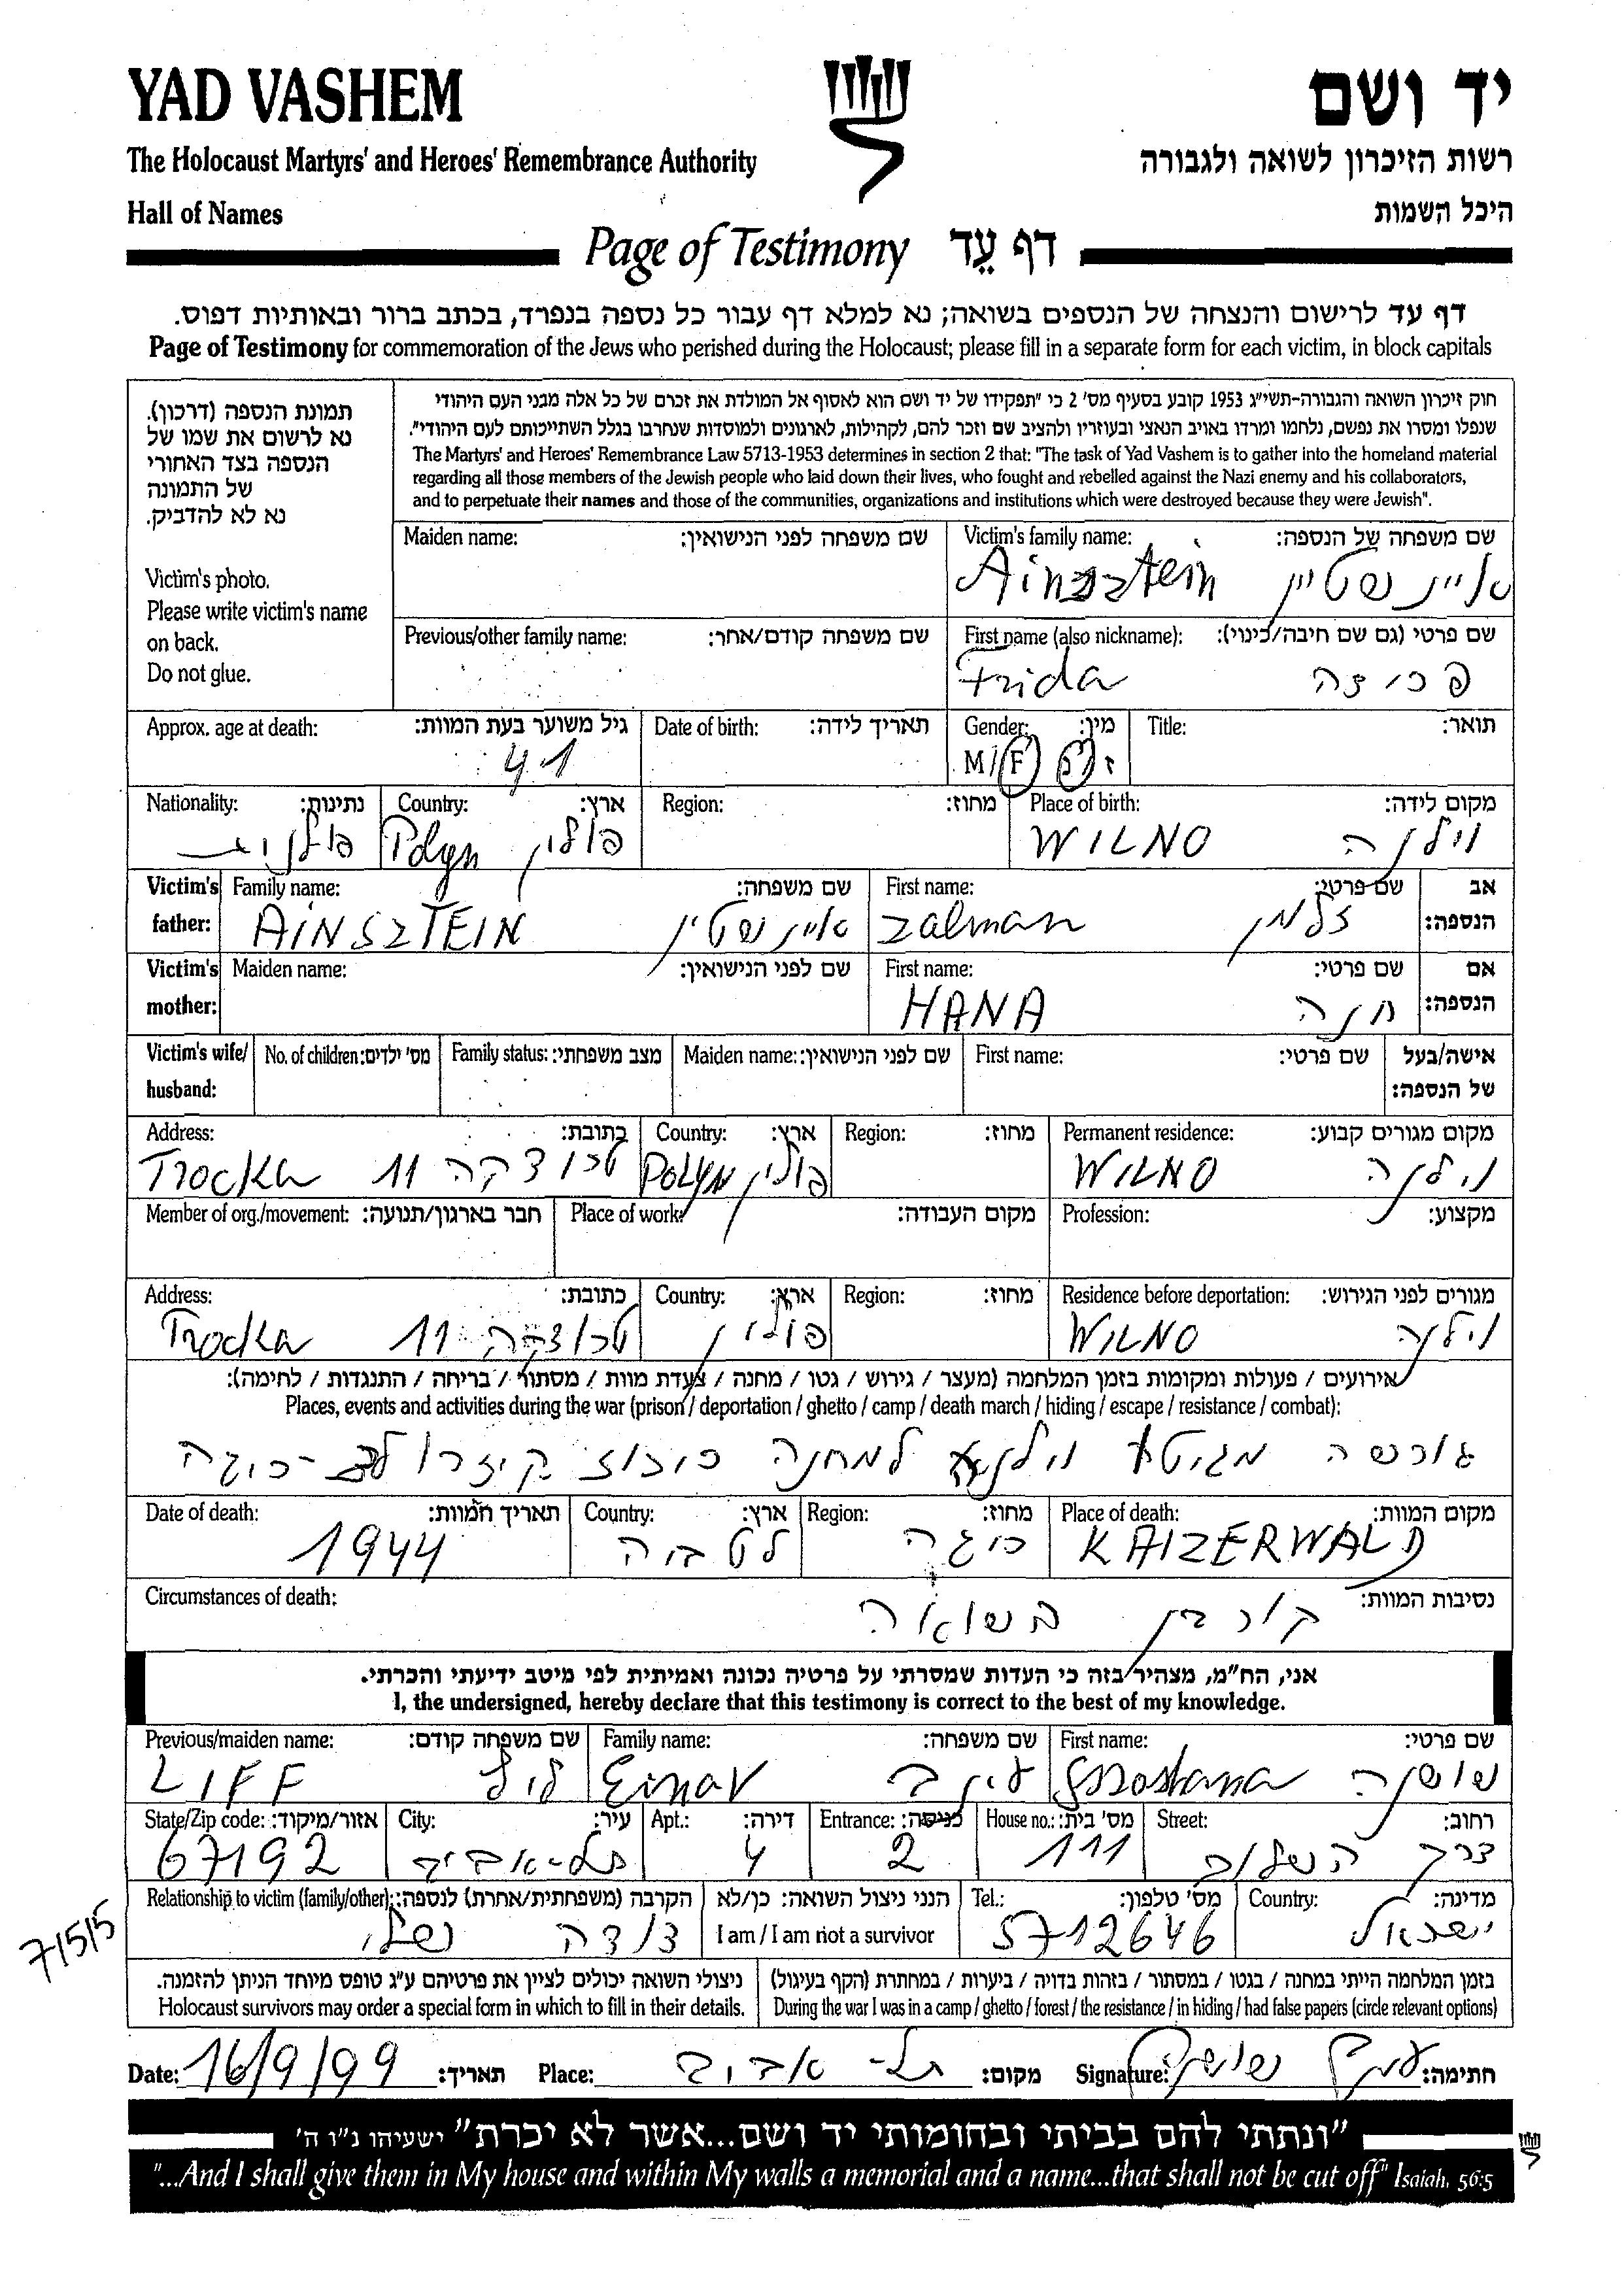 YAD VASHEM
יד ושם
The Holocaust Martyrs' and Heroes' Remembrance Authority
רשות הזיכרון לשואה ולגבורה
Hall of Names
היכל השמות
Page of Testimony דף עֵד
דף עד לרישום והנצחה של הנספים בשואה; נא למלא דף עבור כל נספה בנפרד, בכתב ברור ובאותיות דפוס.
Page of Testimony for commemoration of the Jews who perished during the Holocaust; please fill in a separate form for each victim, in block capitals
תמונת הנספה (דרכון).
נא לרשום את שמו של
הנספה בצד האחורי
של התמונה
נא לא להדביק.
Victim's photo.
Please write victim's name
on back.
Do not glue.
חוק זיכרון השואה והגבורה-תשי"ג 1953 קובע בסעיף מס' 2 כי "תפקידו של יד ושם הוא לאסוף אל המולדת את זכרם של כל אלה מבני העם היהודי
שנפלו ומסרו את נפשם, נלחמו ומרדו באויב הנאצי ובעוזריו ולהציב שם וזכר להם, לקהילות, לארגונים ולמוסדות שנחרבו בגלל השתייכותם לעם היהודי".
The Martyrs' and Heroes' Remembrance Law 5713-1953 determines in section 2 that: "The task of Yad Vashem is to gather into the homeland material
regarding all those members of the Jewish people who laid down their lives, who fought and rebelled against the Nazi enemy and his collaborators,
and to perpetuate their names and those of the communities, organizations and institutions which were destroyed because they were Jewish".
Maiden name: שם משפחה לפני הנישואין:
Victim's family name: שם משפחה של הנספה:
Ainsztein איינשטיין
Previous/other family name: שם משפחה קודם/אחר:
First name (also nickname): שם פרטי (גם שם חיבה/כינוי):
Frida פרידה
Approx. age at death: גיל משוער בעת המוות:
41
Date of birth: תאריך לידה:
Gender: מין:
M/F ז/נ
Title: תואר:
Nationality: נתינות:
פולניה
Country: ארץ:
Polyn פולין
Region: מחוז:
Place of birth: מקום לידה:
WILNO וילנה
Victim's father: Family name: שם משפחה:
AINSZTEIN איינשטיין
First name: שם פרטי: אב הנספה:
Zalman זלמן
Victim's mother: Maiden name: שם לפני הנישואין:
First name: שם פרטי: אם הנספה:
HANA חנה
Victim's wife/husband: No. of children: מס' ילדים: Family status: מצב משפחתי: Maiden name: שם לפני הנישואין: First name: שם פרטי: אישה/בעל של הנספה:
Address: כתובת:
Trocka 11 טרוצקה
Country: ארץ:
POLYN פולין
Region: מחוז:
Permanent residence: מקום מגורים קבוע:
WILNO וילנה
Member of org./movement: חבר בארגון/תנועה: Place of work: מקום העבודה: Profession: מקצוע:
Address: כתובת:
Trocka 11 טרוצקה
Country: ארץ:
פולין
Region: מחוז:
Residence before deportation: מגורים לפני הגירוש:
WILNO וילנה
אירועים / פעולות ומקומות בזמן המלחמה (מעצר / גירוש / גטו / מחנה / צעדת מוות / מסתור / בריחה / התנגדות / לחימה):
Places, events and activities during the war (prison / deportation / ghetto / camp / death march / hiding / escape / resistance / combat):
גורשה מגיטא וילנא למחנה ריכוז קיזרולד-ריגה
Date of death: תאריך המוות:
1944
Country: ארץ:
לטביה
Region: מחוז:
ריגה
Place of death: מקום המוות:
KAIZERWALD
Circumstances of death: נסיבות המוות:
קורבן השואה
אני, הח"מ, מצהיר בזה כי העדות שמסרתי על פרטיה נכונה ואמיתית לפי מיטב ידיעתי והכרתי.
I, the undersigned, hereby declare that this testimony is correct to the best of my knowledge.
Previous/maiden name: שם משפחה קודם:
LIFF ליף
Family name: שם משפחה:
Einav עינב
First name: שם פרטי:
Shoshana שושנה
State/Zip code: אזור/מיקוד:
67192
City: עיר:
תל-אביב
Apt.: דירה:
4
Entrance: כניסה:
2
House no.: מס' בית:
111
Street: רחוב:
דרך השלום
Relationship to victim (family/other): הקרבה (משפחתית/אחרת) לנספה:
דודה שלי
הנני ניצול השואה: כן/לא
I am / I am not a survivor
Tel.: מס' טלפון:
5712646
Country: מדינה:
ישראל
7/5/5
ניצולי השואה יכולים לציין את פרטיהם ע"ג טופס מיוחד הניתן להזמנה.
Holocaust survivors may order a special form in which to fill in their details.
בזמן המלחמה הייתי במחנה / בגטו / במסתור / בזהות בדויה / ביערות / במחתרת (הקף בעיגול)
During the war I was in a camp / ghetto / forest / the resistance / in hiding / had false papers (circle relevant options)
Date: 16/9/99 תאריך: Place: תל-אביב מקום: Signature: עינב שושנה חתימה:
"ונתתי להם בביתי ובחומותי יד ושם...אשר לא יכרת" ישעיהו נ"ו ה'
"...And I shall give them in My house and within My walls a memorial and a name...that shall not be cut off" Isaiah, 56:5